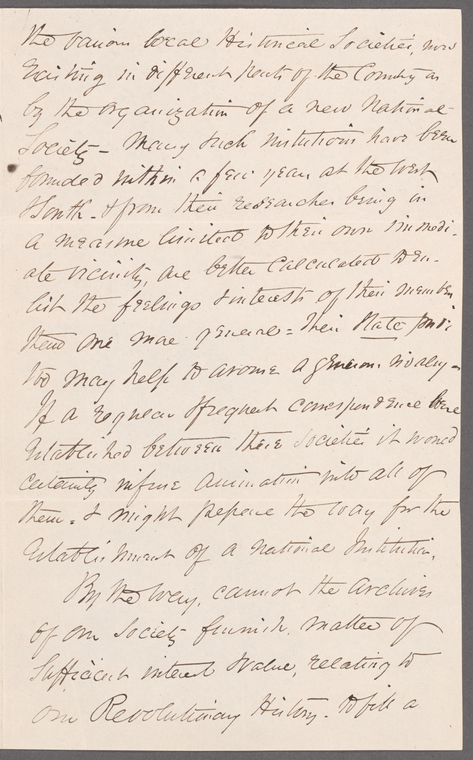 the various local Historical Societies, now
Existing in different parts of the Country as
by the organization of a new National
Society - Many such institutions have been
founded within a few years at the West
& South - & from their researches being in
a measure limited to their own immedi-
ate vicinity, are better calculated to en-
list the feelings & interests of their members
than one more general = their State pride
too may help to arouse a generous rivalry -
If a regular & frequent correspondence were
Established between these Societies it would
certainly infuse animation into all of
them = & might prepare the way for the
Establishment of a National Institution.
By the way, cannot the archives
of our Society furnish matter of
Sufficient interest & value, relating to
our Revolutionary History - to fill a